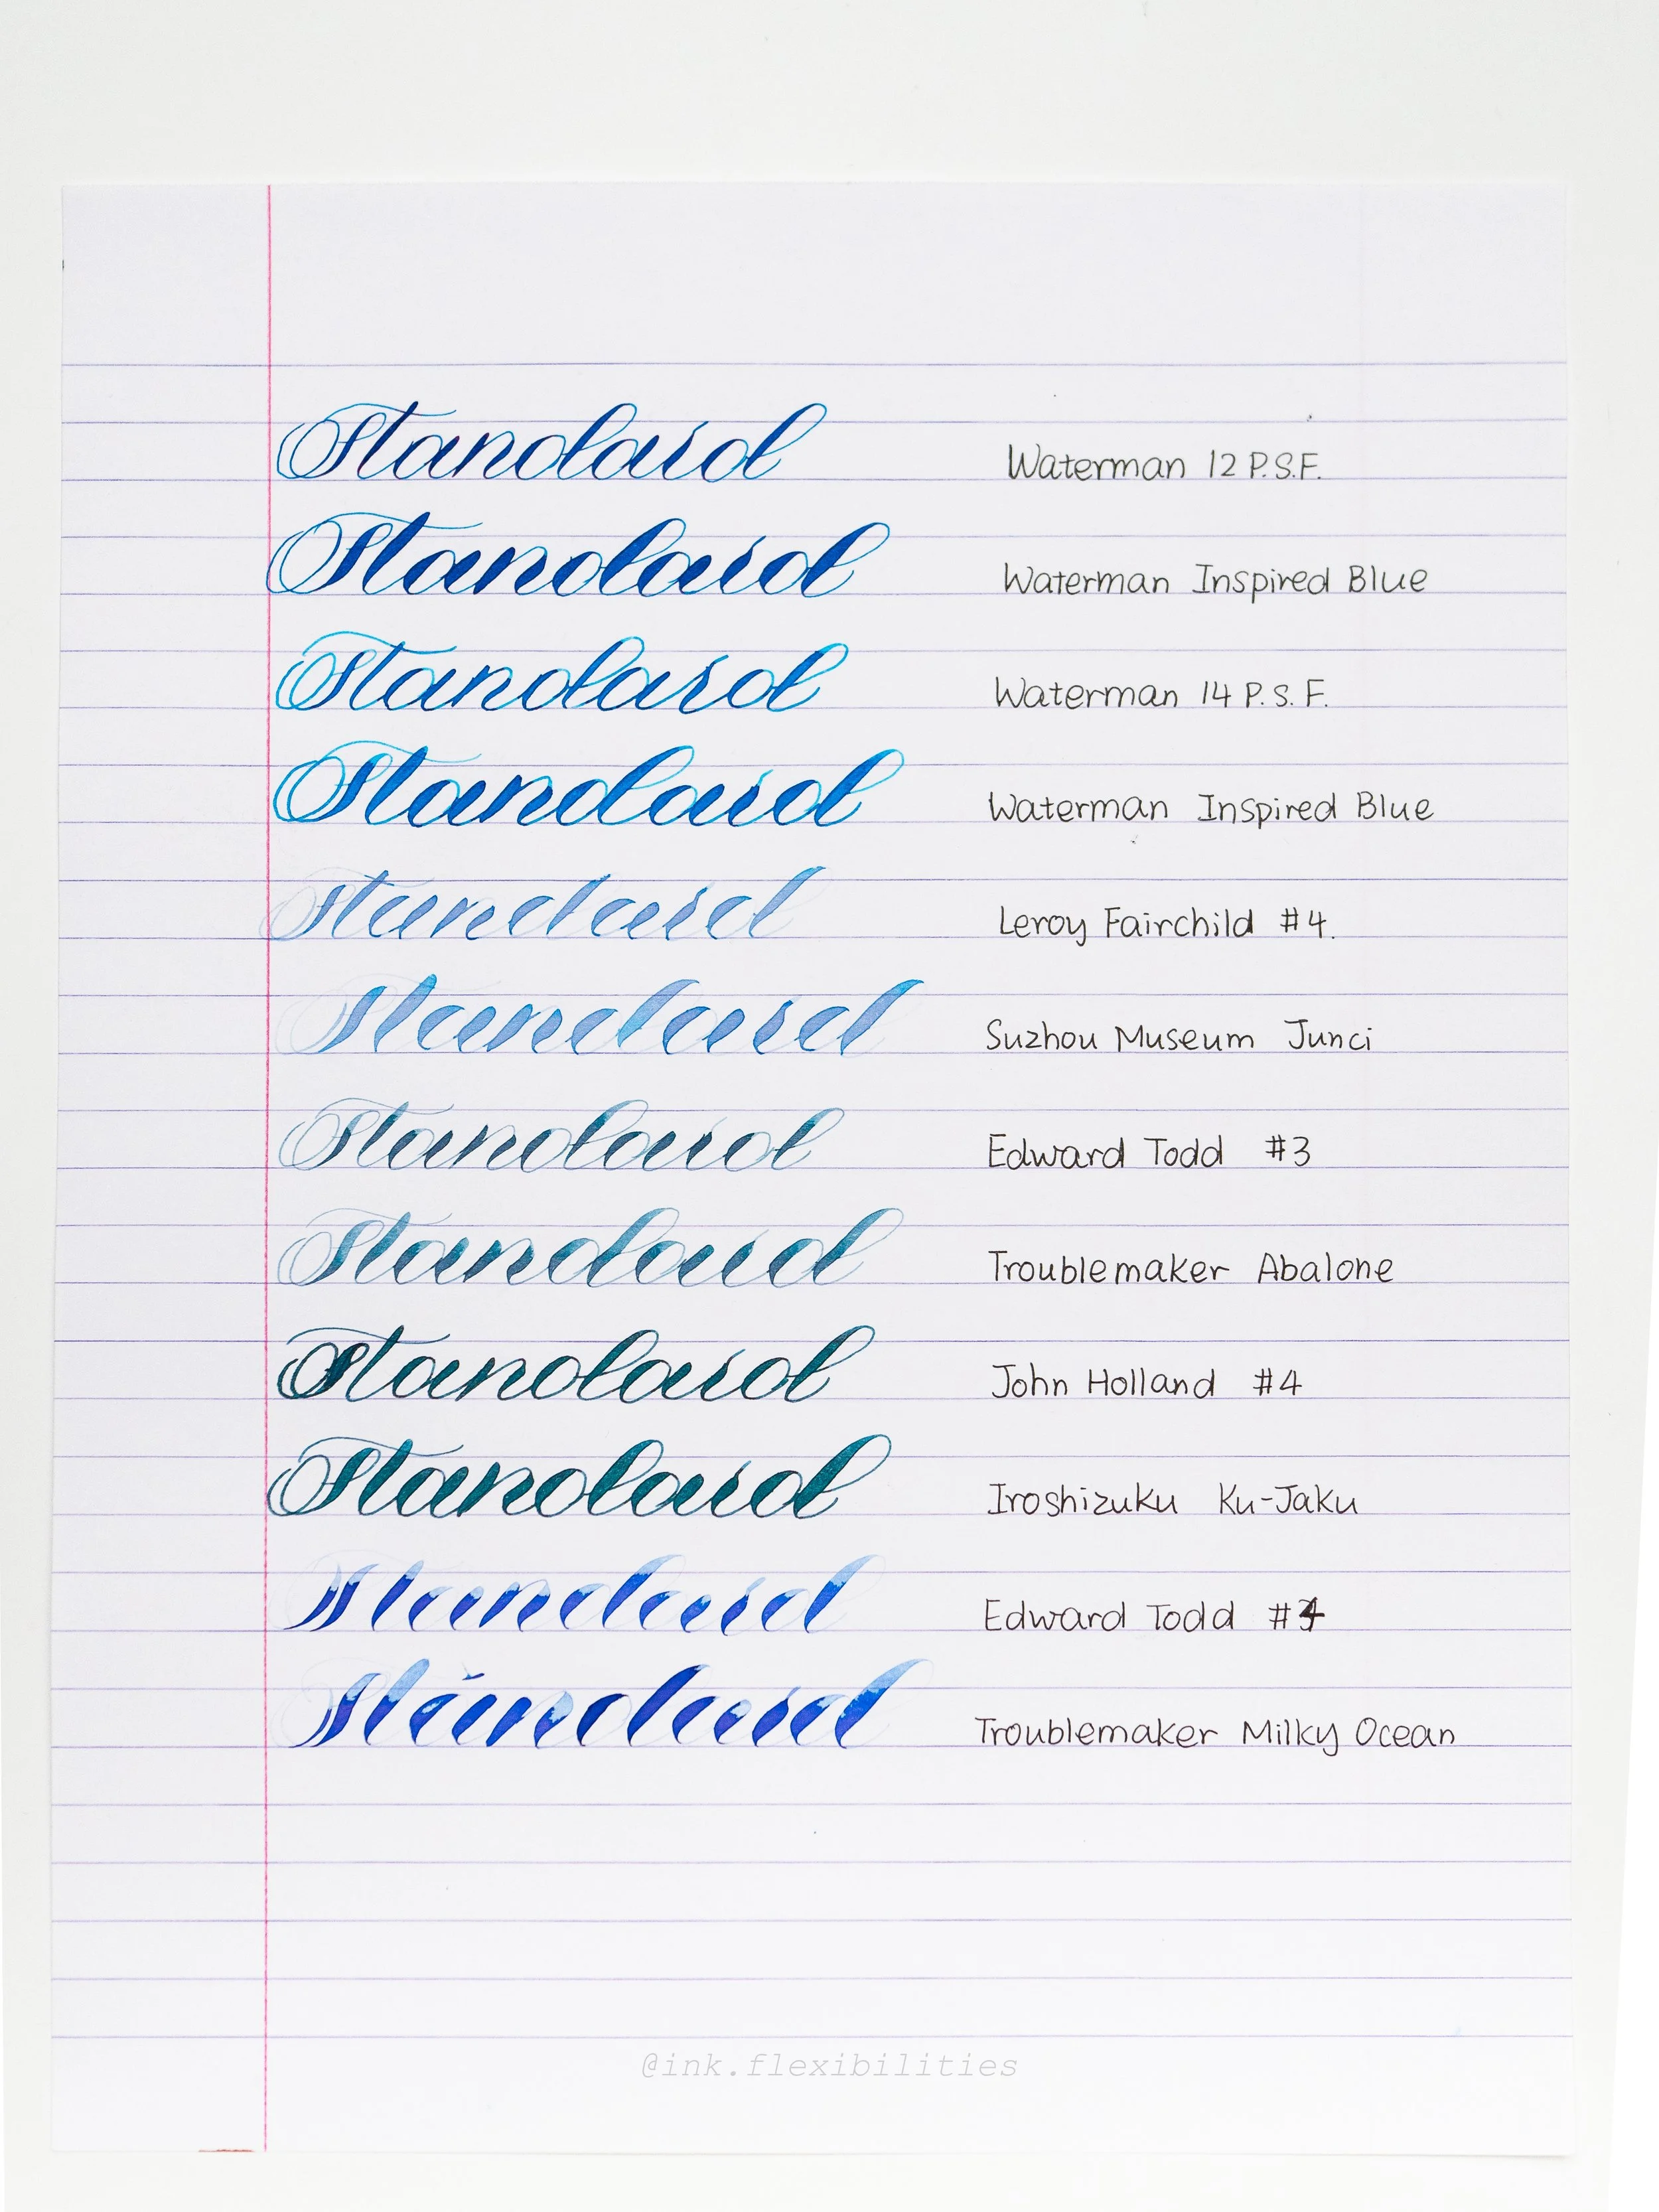 Standard Waterman 12 P.S.F.
Standard Waterman Inspired Blue
Standard Waterman 14 P.S.F.
Standard Waterman Inspired Blue
Standard Leroy Fairchild #4.
Standard Suzhou Museum Junci
Standard Edward Todd #3
Standard Troublemaker Abalone
Standard John Holland #4
Standard Iroshizuku Ku-Jaku
Standard Edward Todd #4
Standard Troublemaker Milky Ocean
@ink.flexibilities